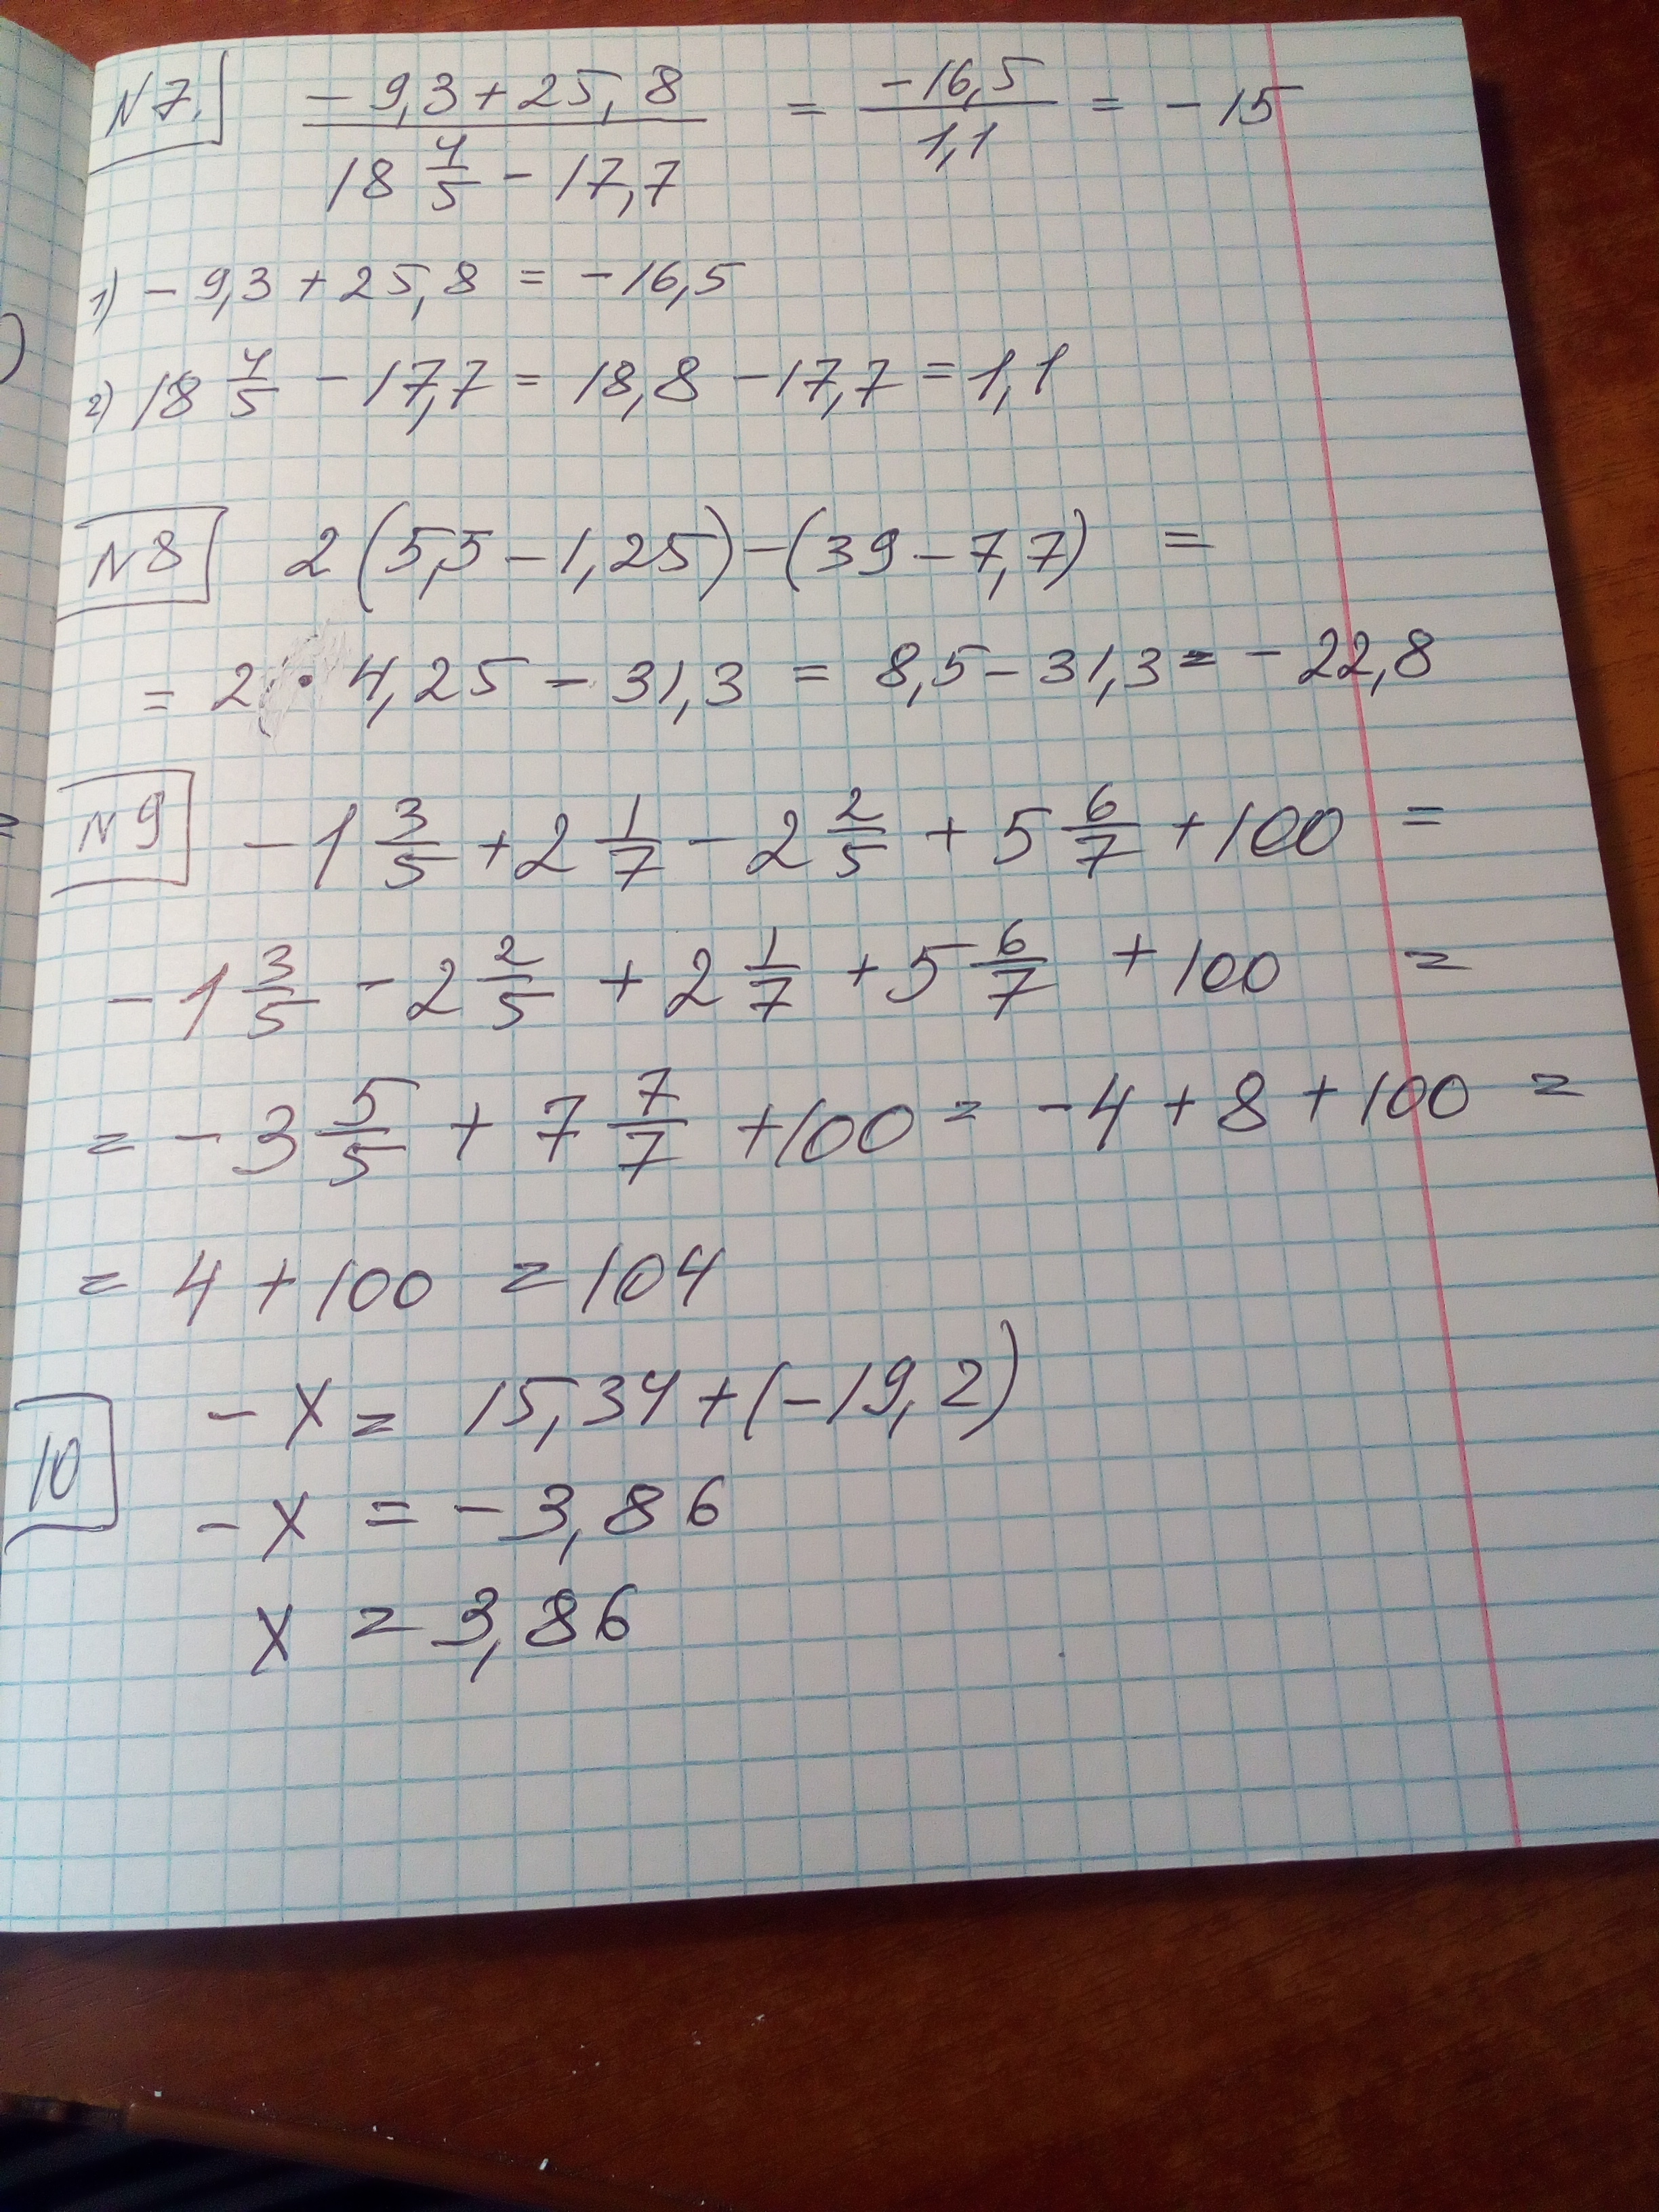 N7. (-9,3+25,8)/(18 4/5 - 17,7) = -16,5/1,1 = -15
1) -9,3+25,8 = -16,5
2) 18 4/5 - 17,7 = 18,8 - 17,7 = 1,1
N8 2(5,5-1,25)-(39-7,7) =
= 2 · 4,25 - 31,3 = 8,5 - 31,3 = -22,8
N9 -1 3/5 + 2 1/7 - 2 2/5 + 5 6/7 + 100 =
-1 3/5 - 2 2/5 + 2 1/7 + 5 6/7 + 100 =
= -3 5/5 + 7 7/7 + 100 = -4 + 8 + 100 =
= 4 + 100 = 104
10 -x = 15,34 + (-19,2)
-x = -3,86
x = 3,86